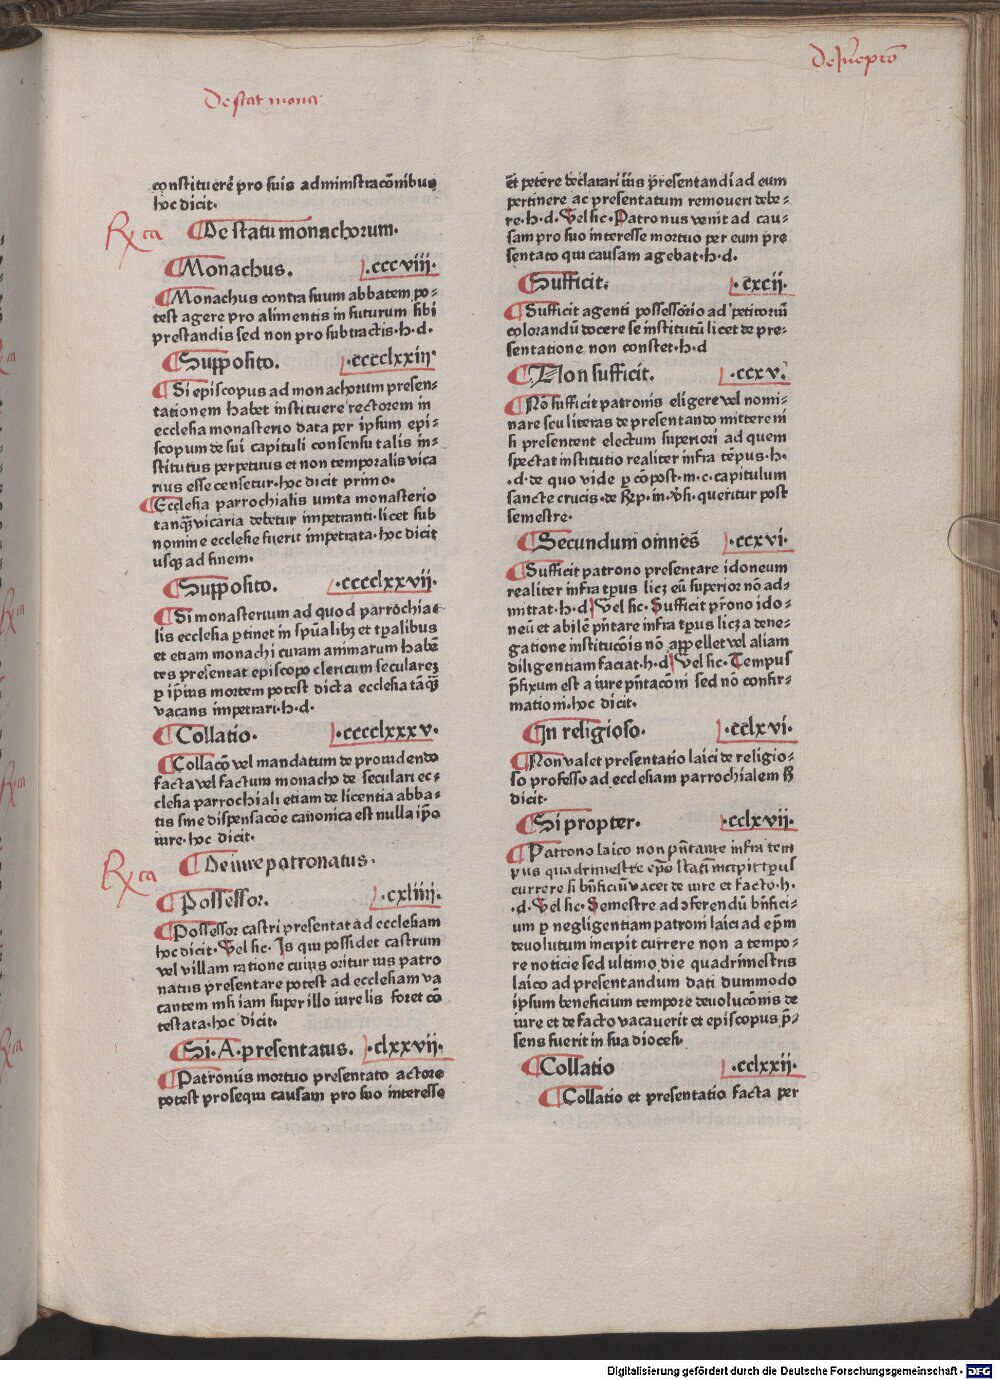 De stat mona
De Jure prõ
constituerẽ pro suis administracõnibus
hoc dicit.
Rca
¶De statu monachorum.
¶Monachus. .cccviii.
¶Monachus contra suum abbatem po⸗
test agere pro alimentis in futurum sibi
prestandis sed non pro subtractis.h.d.
¶Supposito. .cccclxxiii.
¶Si episcopus ad monachorum presen⸗
tationem habet instituere rectorem in
ecclesia monasterio data per ipsum epi⸗
scopum de sui capituli consensu talis in⸗
stitutus perpetuus et non temporalis vica
rius esse censetur.hoc dicit primo.
¶Ecclesia parrochialis unita monasterio
tanqȝ vicaria debetur impetranti.licet sub
nomine ecclesie fuerit impetrata.hoc dicit
usqȝ ad finem.
¶Supposito. .cccclxxvii.
¶Si monasterium ad quod parrochia⸗
lis ecclesia ꝑtinet in spũalibȝ et tꝑalibus
et etiam monachi curam animarum habẽ
tes presentat episcopo clericum seculareȝ
ꝑ ip̃ius mortem potest dicta ecclesia tãqȝ
vacans impetrari.h.d.
¶Collatio. .cccclxxxv.
¶Collacõ vel mandatum de prouidendo
facta vel factum monacho de seculari ec⸗
clesia parrochiali etiam de licentia abba⸗
tis sine dispensacõe canonica est nulla ip̃o
iure.hoc dicit.
Rca
¶De iure patronatus.
¶Possessor. .cxliiij.
¶Possessor castri presentat ad ecclesiam
hoc dicit. Uel sic. Is qui possidet castrum
vel villam ratione cuius oritur ius patro
natus presentare potest ad ecclesiam va
cantem nisi iam super illo iure lis foret cõ
testata.hoc dicit.
¶Si.A.presentatus. .clxxvij.
¶Patronus mortuo presentato actore
potest prosequi causam pro suo interesse
et petere declarari ius presentandi ad eum
pertinere ac presentatum remoueri debe⸗
re.h.d. Uel sic. Patronus venit ad cau⸗
sam pro suo interesse mortuo per eum pre
sentato qui causam agebat.h.d.
¶Sufficit. .cxcij.
¶Sufficit agenti possessorio ad petitoriũ
colorandũ docere se institutũ licet de pre⸗
sentatione non constet.h.d
¶Non sufficit. .ccxv.
¶Nõ sufficit patronis eligere vel nomi⸗
nare seu literas de presentando mittere ni
si presentent electum superiori ad quem
spectat institutio realiter infra tẽpus.h.
.d.de quo vide ꝑ cõpost.m.c.capitulum
sancte crucis.de Rep.in.v̓si.queritur post
semestre.
¶Secundum omnes .ccxvi.
¶Sufficit patrono presentare idoneum
realiter infra tp̃us licȝ eũ superior nõ ad⸗
mittat.h.d Uel sic. Sufficit pr̃ono ido⸗
neũ et abilẽ pñtare infra tp̃us licȝ a dene⸗
gatione institucõis nõ appellet vel aliam
diligentiam faciat.h.d Uel sic. Tempus
p̃fixum est a iure pñtacõni sed nõ confir⸗
mationi.hoc dicit.
¶In religioso. .cclxvi.
¶Non valet presentatio laici de religio⸗
so professo ad ecclesiam parrochialem ß
dicit.
¶Si propter. .cclxvij.
¶Patrono laico non pñtante infra tem
pus quadrimestre epõ statĩ incipit tp̃us
currere si bñficiũ vacet de iure et facto.h.
.d. Uel sic. Semestre ad ɔferendũ bñfici⸗
um ꝑ negligentiam patroni laici ad ep̃m
deuolutum incipit currere non a tempo⸗
re noticie sed ultimo die quadrimestris
laico ad presentandum dati dummodo
ipsum beneficium tempore deuolucõnis de
iure et de facto vacauerit et episcopus p̃⸗
sens fuerit in sua diocesi.
¶Collatio .cclxxij.
¶Collatio et presentatio facta per
Digitalisierung gefördert durch die Deutsche Forschungsgemeinschaft - DFG